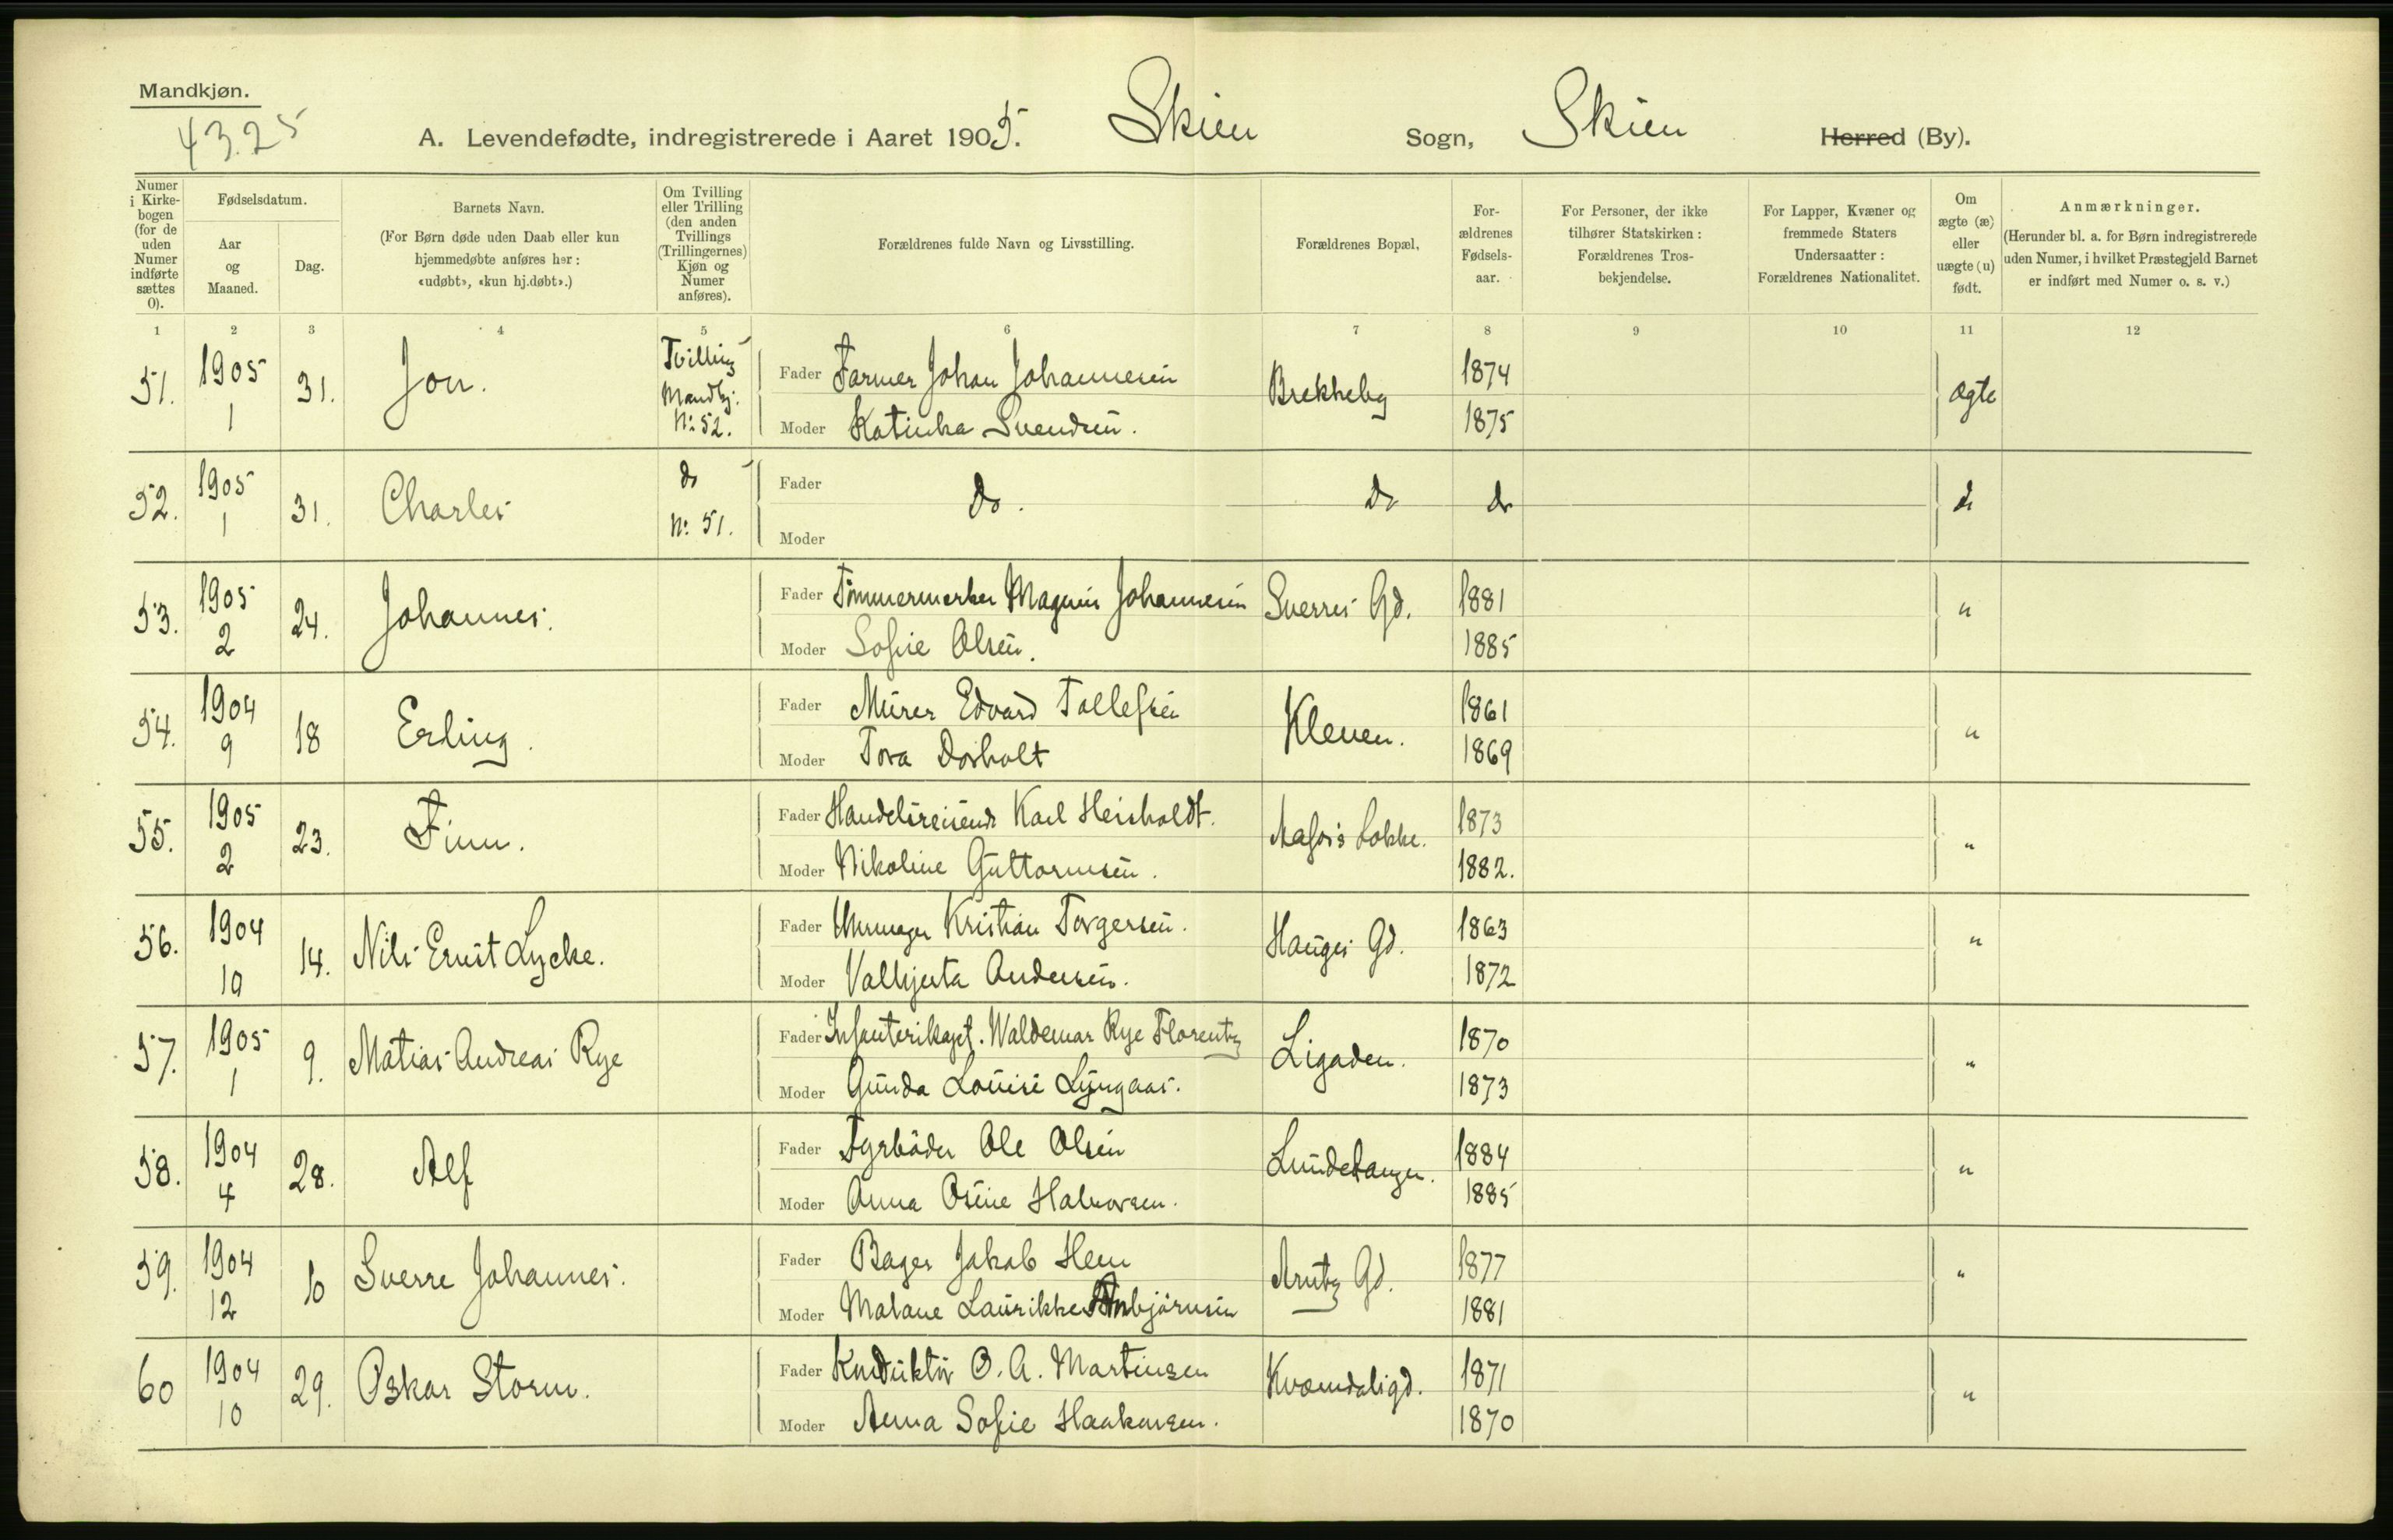 Mandkjøn.
4325
A. Levendefødte, indregistrerede i Aaret 1905. Skien Sogn, Skien Herred (By).
Numer i Kirkebogen (for de uden Numer indførte sættes 0).
Fødselsdatum.
Aar og Maaned.
Dag.
Barnets Navn.
(For Børn døde uden Daab eller kun hjemmedøbte anføres her: «udøbt», «kun hj.døbt».)
Om Tvilling eller Trilling (den anden Tvillings (Trillingernes) Kjøn og Numer anføres).
Forældrenes fulde Navn og Livsstilling.
Forældrenes Bopæl,
For-ældrenes Fødsels-aar.
For Personer, der ikke tilhører Statskirken: Forældrenes Tros-bekjendelse.
For Lapper, Kvæner og fremmede Staters Undersaatter: Forældrenes Nationalitet.
Om ægte (æ) eller uægte (u) født.
Anmærkninger.
(Herunder bl. a. for Børn indregistrerede uden Numer, i hvilket Præstegjeld Barnet er indført med Numer o. s. v.)
1 2 3 4 5 6 7 8 9 10 11 12
51. 1905 1 31. Jon. Tvilling Mandkj. No 52. Fader Farmer Johan Johannesen Brekkeby 1874 ægte
Moder Katinka Svendsen. 1875
52. 1905 1 31. Charles do No 51. Fader do. do do do
Moder
53. 1905 2 24. Johannes. Fader Tømmermerker Magnus Johannesen Sverres Gd. 1881 "
Moder Sofie Olsen. 1885
54. 1904 9 18 Erling. Fader Murer Edvard Tollefsen Kleven. 1861 "
Moder Tora Dorholt 1869
55. 1905 2 23. Finn. Fader Handelsreisende Karl Heisholdt. Løkke. 1873 "
Moder Nikoline Guttormsen. 1882.
56. 1904 10 14. Nils Ernst Lycke. Fader Uhrmager Kristian Torgersen. Hauges Gd. 1863 "
Moder Valkjerta Andersen. 1872
57. 1905 1 9. Matias Andreas Rye Fader Infanterikapt. Waldemar Rye Florentz Ligaden. 1870 "
Moder Gunda Louise Lyngaas. 1873
58. 1904 4 28. Alf Fader Fyrbøder Ole Olsen Lundetangen. 1884 "
Moder Anna Osine Halvorsen. 1885
59. 1904 12 10 Sverre Johannes. Fader Bager Jakob Hem Arntz Gd. 1877 "
Moder Malane Laurikke Anbjørnsen 1881
60 1904 10 29. Oskar Storm. Fader Konduktør O. A. Martinsen Kvændalsgd. 1871 "
Moder Anna Sofie Haakonsen. 1870